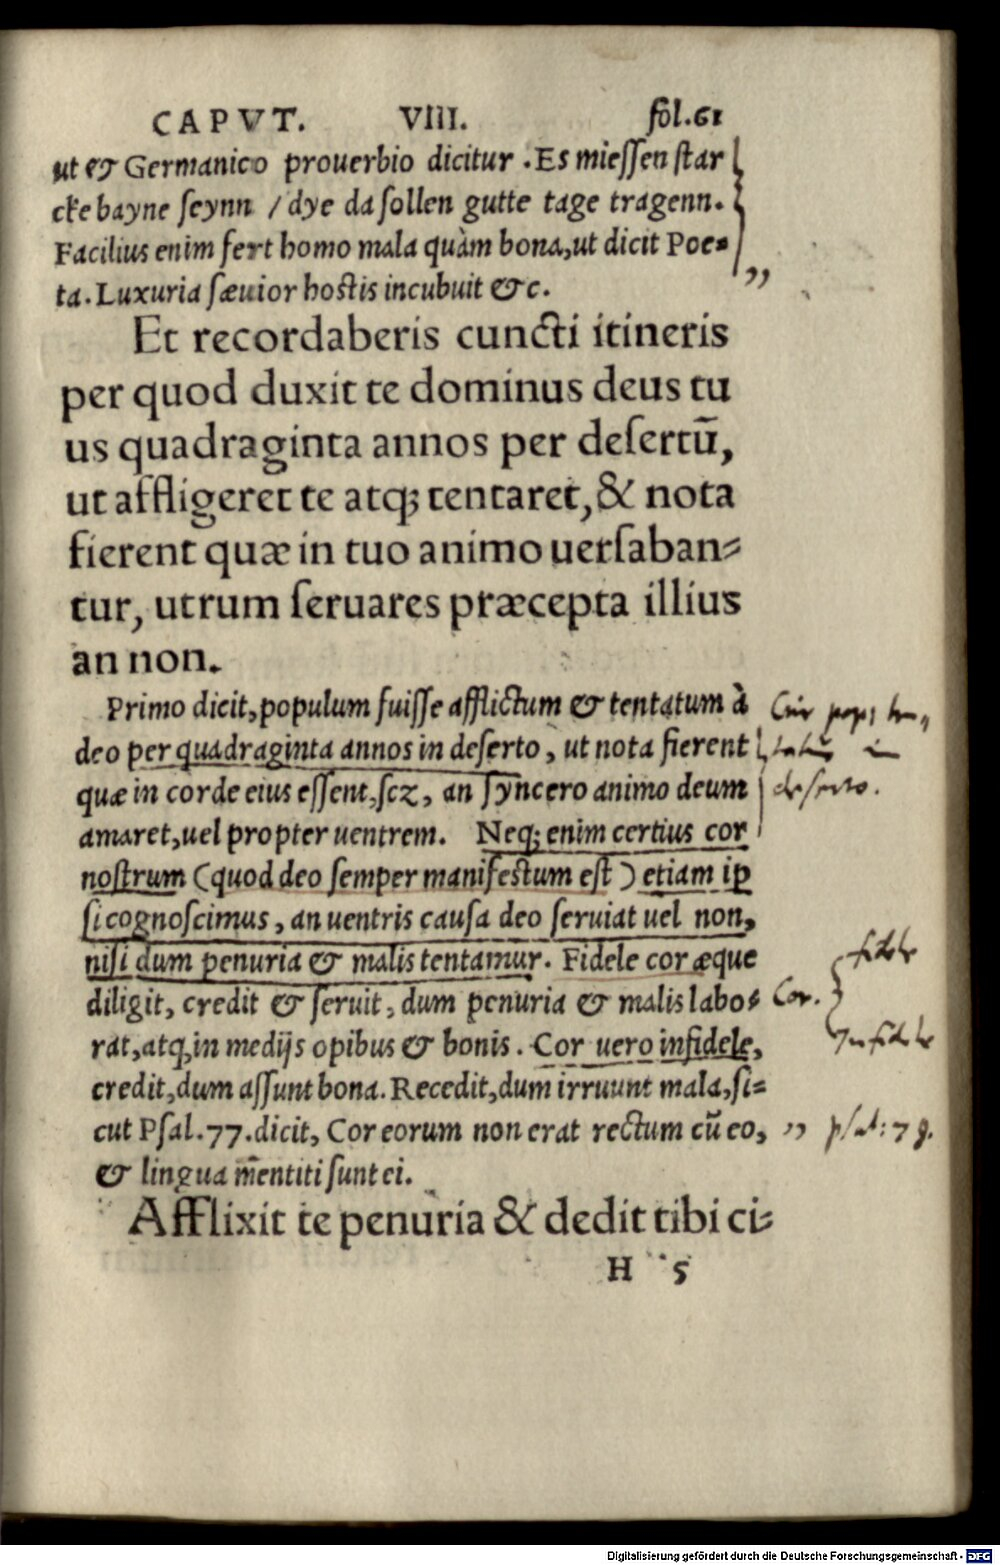 CAPVT. VIII. fol.61
ut & Germanico prouerbio dicitur . Es miessen star
cke bayne seynn / dye da sollen gutte tage tragenn.
Facilius enim fert homo mala quàm bona, ut dicit Poe-
ta. Luxuria sæuior hostis incubuit &c.
Et recordaberis cuncti itineris
per quod duxit te dominus deus tu
us quadraginta annos per desertū,
ut affligeret te atq; tentaret, & nota
fierent quæ in tuo animo uersaban-
tur, utrum seruares præcepta illius
an non.
Primo dicit, populum fuisse afflictum & tentatum à
deo per quadraginta annos in deserto, ut nota fierent
quæ in corde eius essent, scz, an syncero animo deum
amaret, uel propter uentrem. Neq; enim certius cor
nostrum (quod deo semper manifestum est) etiam ip
si cognoscimus, an uentris causa deo seruiat uel non,
nisi dum penuria & malis tentamur. Fidele cor æque
diligit, credit & seruit, dum penuria & malis labo-
rat, atq; in medijs opibus & bonis. Cor uero infidele,
credit, dum assunt bona. Recedit, dum irruunt mala, si-
cut Psal. 77. dicit, Cor eorum non erat rectum cū eo,
& lingua mētiti sunt ei.
Afflixit te penuria & dedit tibi ci-
H 5
Cur
in
deserto.
fidele
Cor.
Infidele
psal: 78.
Digitalisierung gefördert durch die Deutsche Forschungsgemeinschaft - DFG